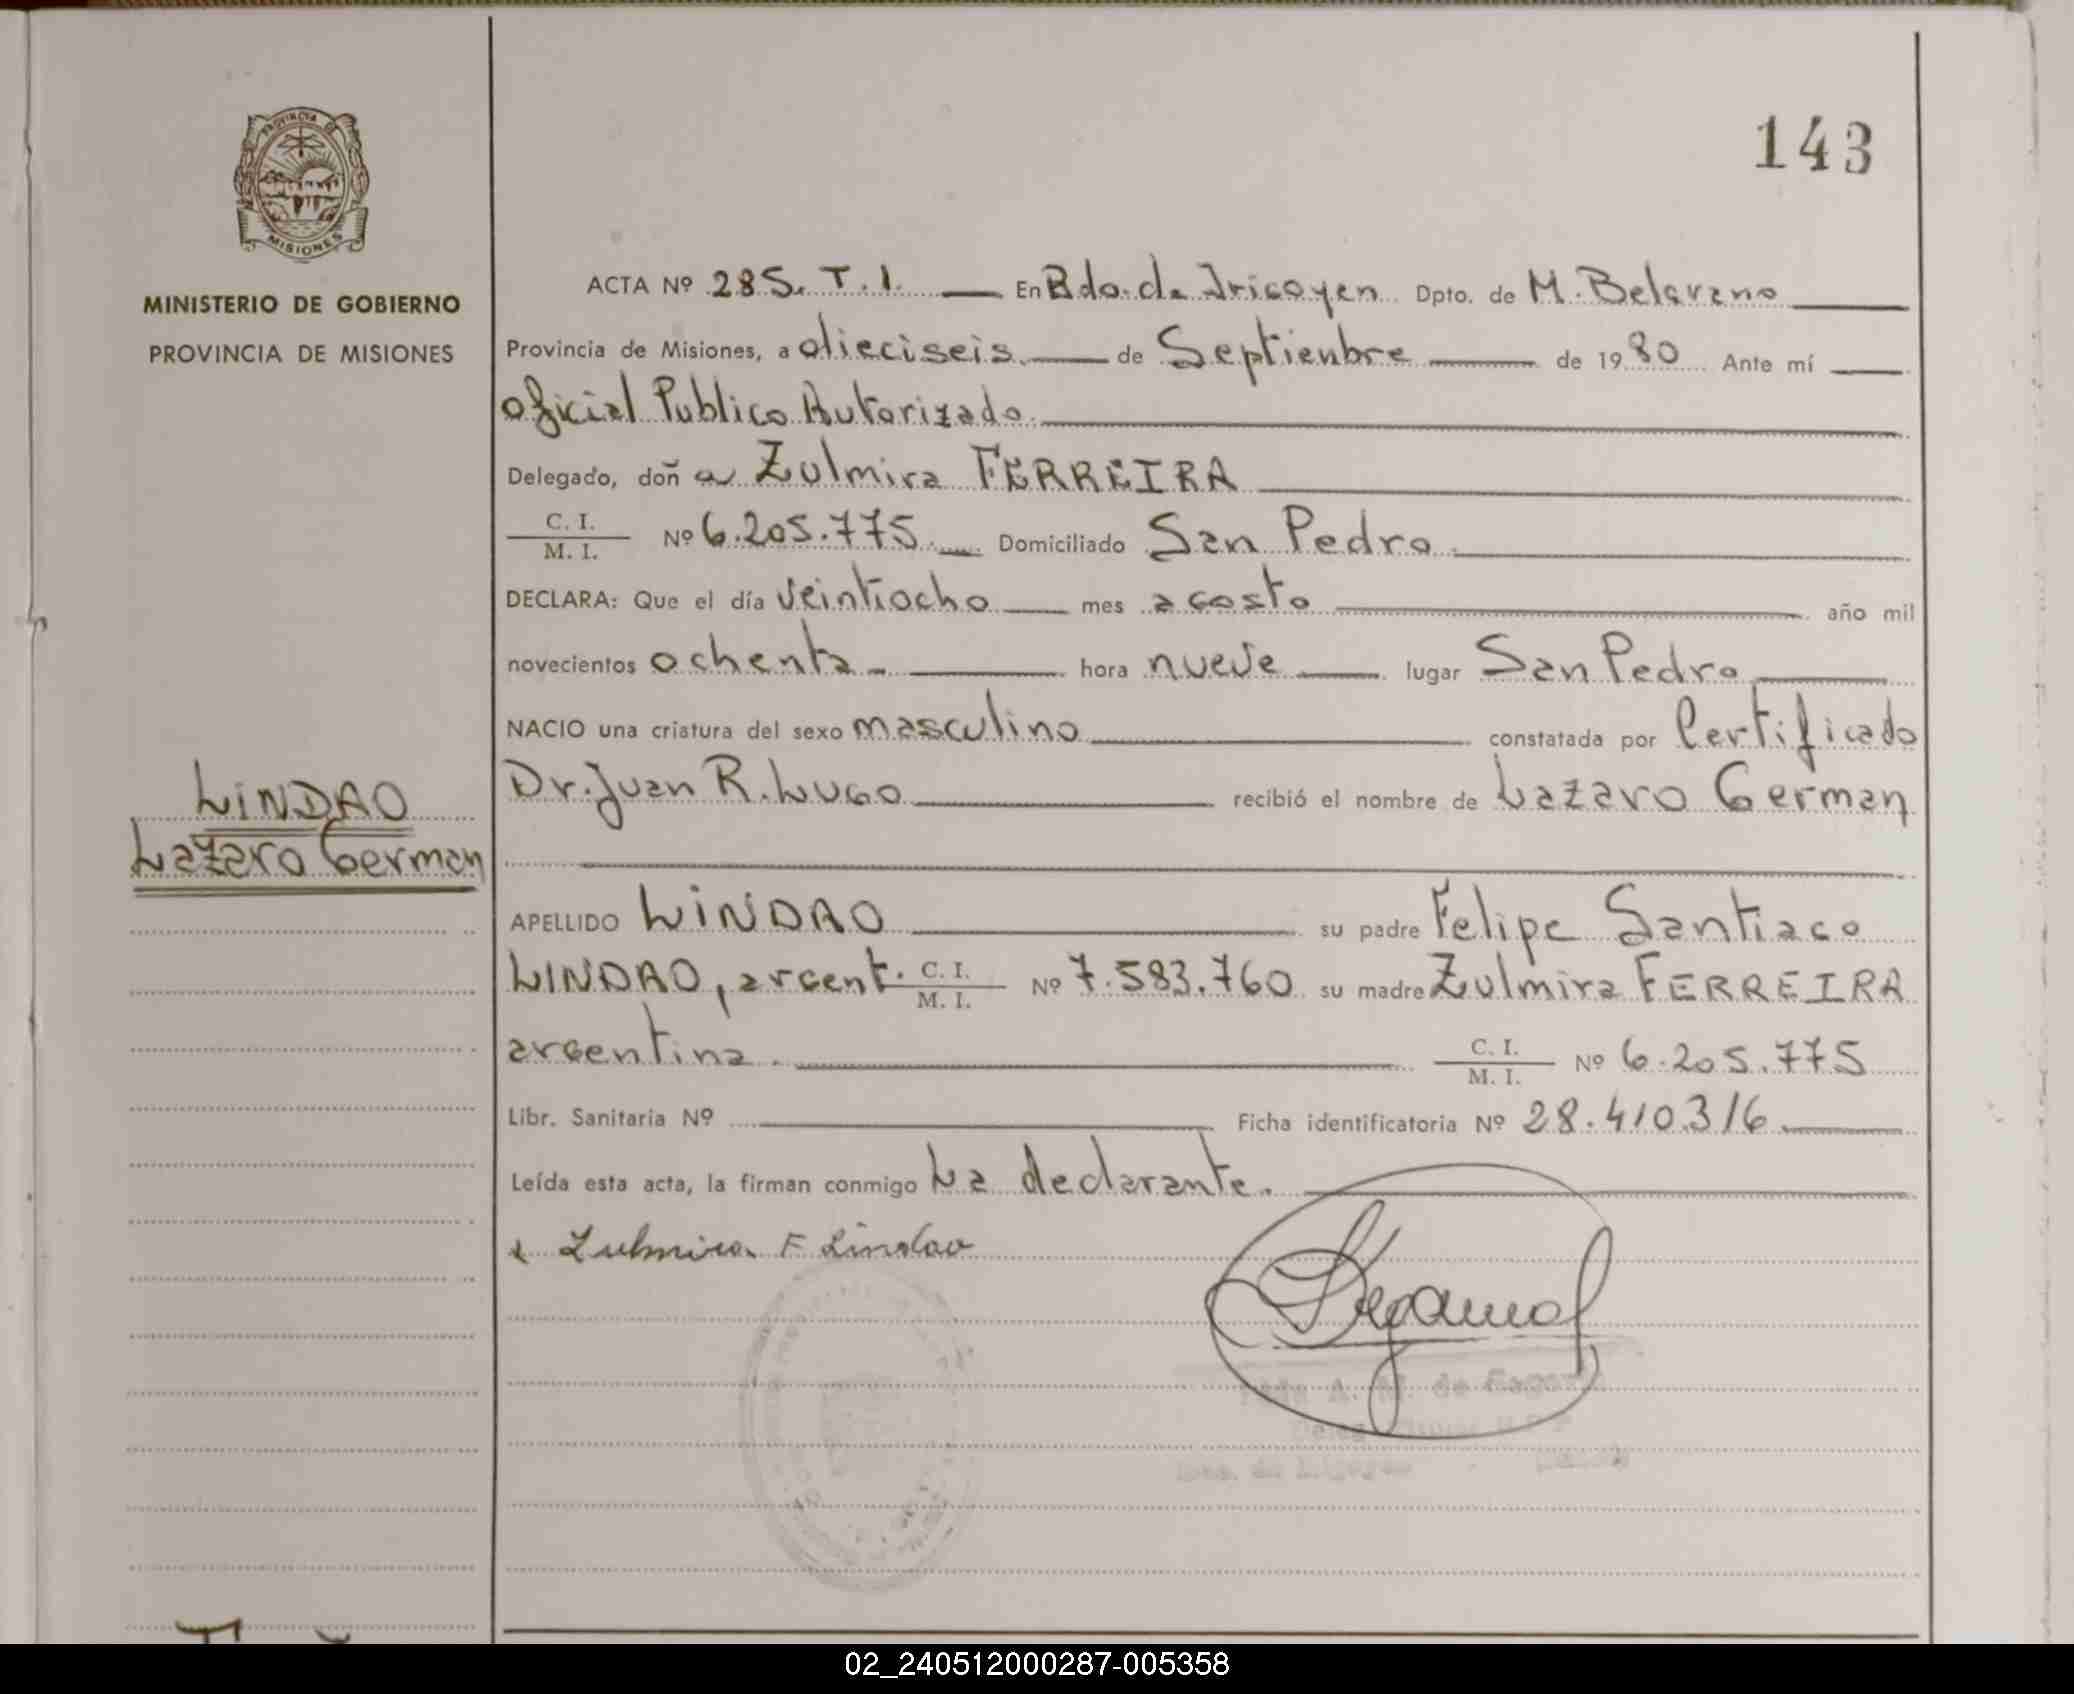 143
PROVINCIA DE
MISIONES
MINISTERIO DE GOBIERNO
PROVINCIA DE MISIONES
LINDAO
Lazaro German
ACTA Nº 285. T. 1. En Bdo. de Irigoyen Dpto. de M. Belgrano
Provincia de Misiones, a dieciseis de Septienbre de 1980 Ante mí
oficial Publico Autorizado
Delegado, doña Zulmira FERREIRA
C. I.
M. I. Nº 6.205.775 Domiciliado San Pedro
DECLARA: Que el día veintiocho mes agosto año mil
novecientos ochenta hora nueve lugar San Pedro
NACIO una criatura del sexo masculino constatada por Certificado
Dr. Juan R. Lugo recibió el nombre de Lazaro German
APELLIDO LINDAO su padre Felipe Santiago
LINDAO, argent. C. I.
M. I. Nº 7.583.760 su madre Zulmira FERREIRA
argentina. C. I.
M. I. Nº 6.205.775
Libr. Sanitaria Nº Ficha identificatoria Nº 28.410.316
Leída esta acta, la firman conmigo La declarante.
x Zulmira F Lindao
02_240512000287-005358